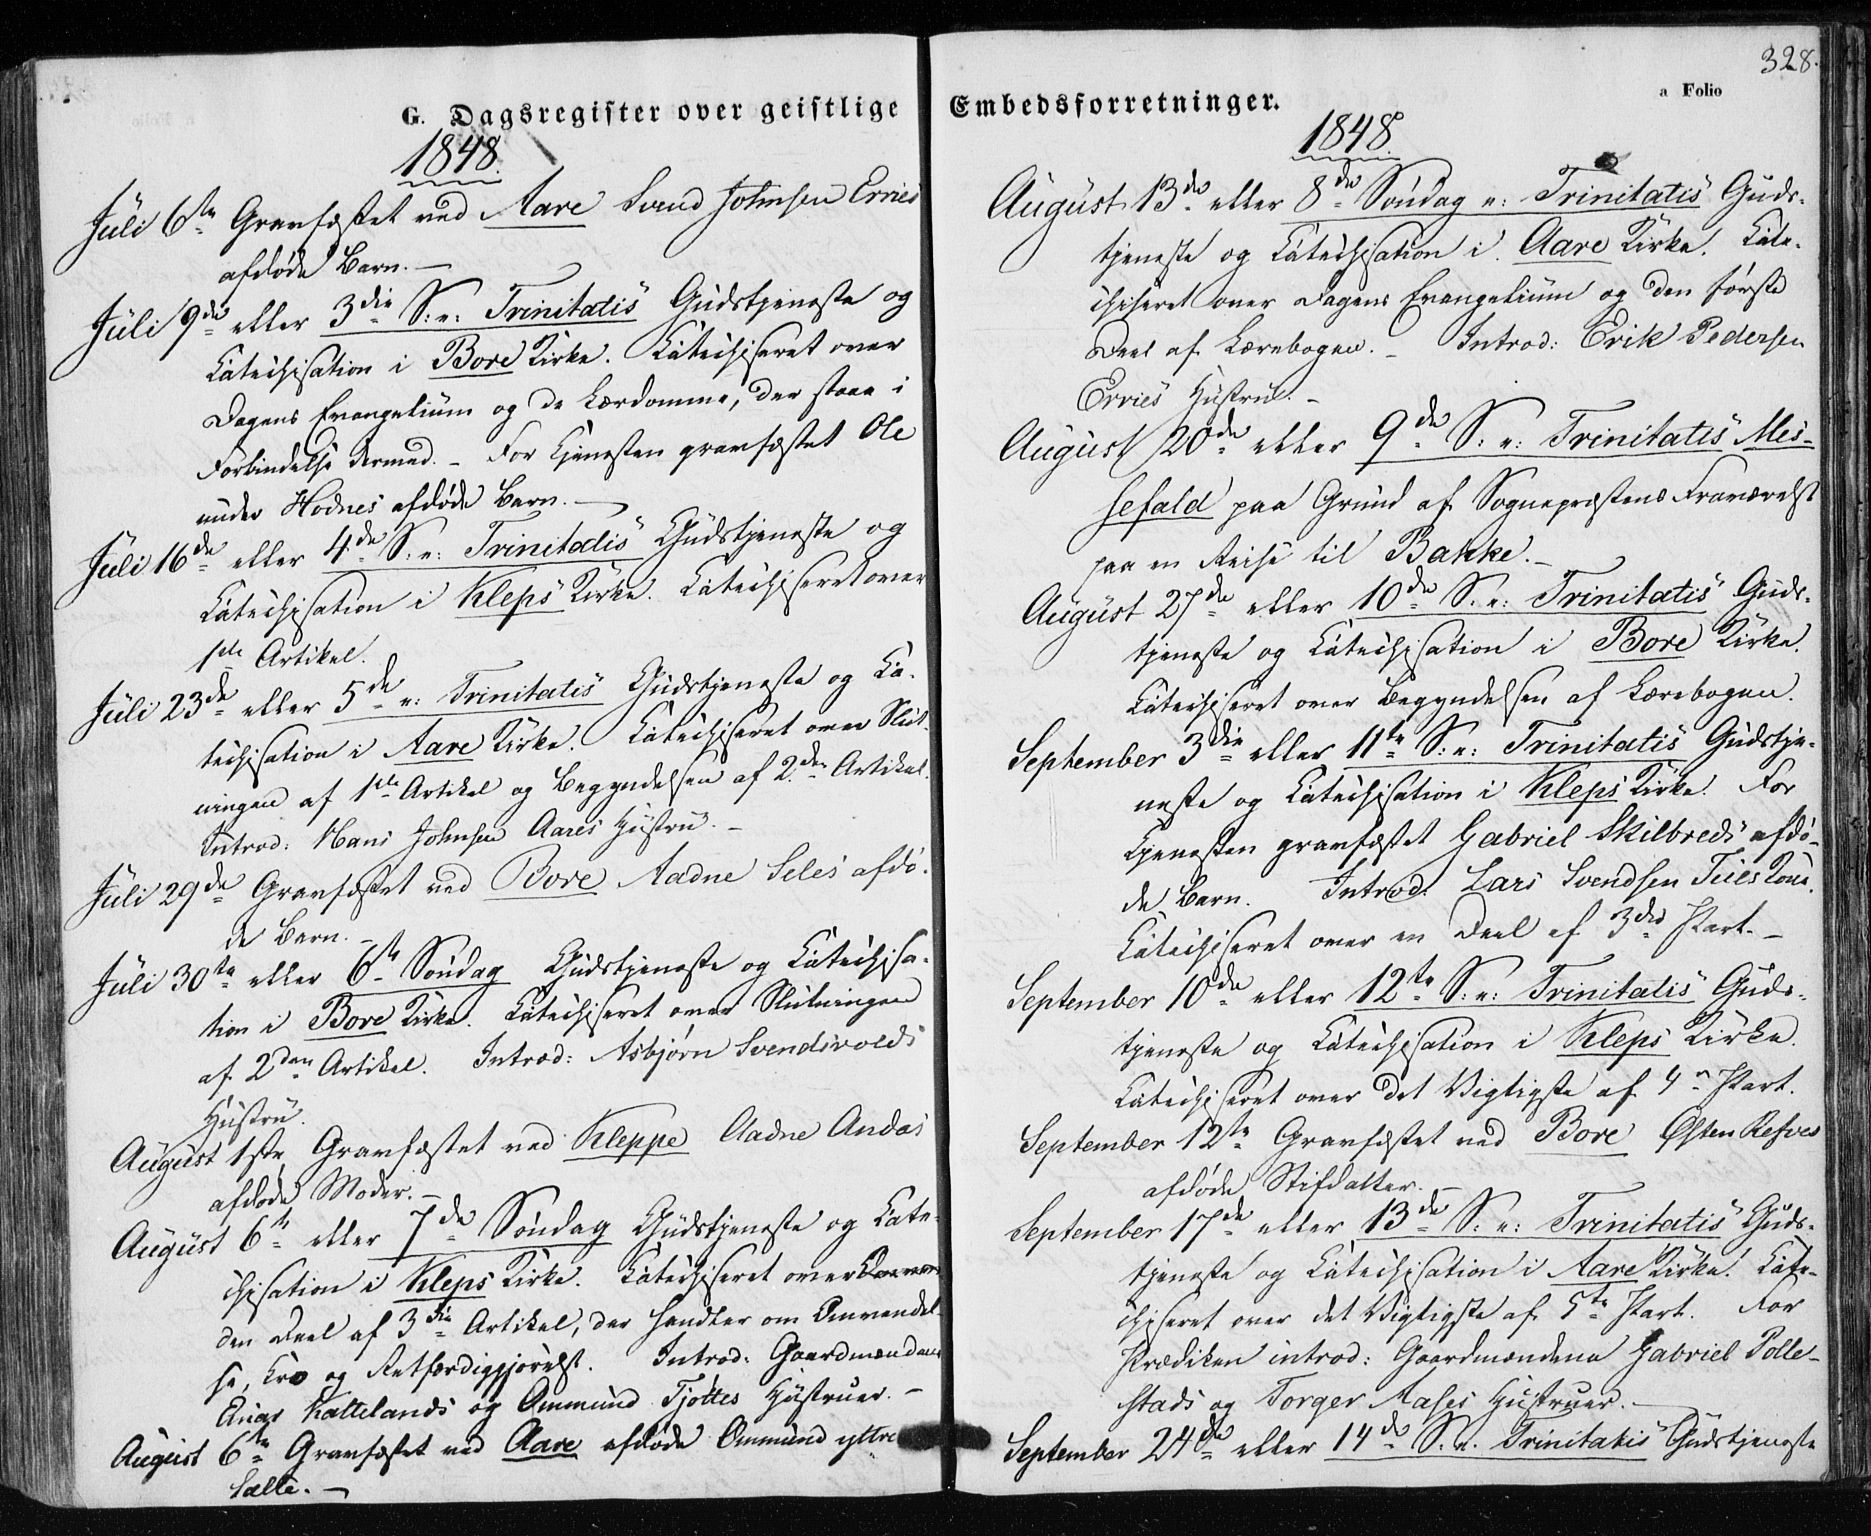 G. Dagsregister over geistlige
1848.
Juli 6te Gravfæstet ved Aare Svend Johnsen Erviès
afdøde Barn. —
Juli 9de eller 3die S: e: Trinitatis Gudstjeneste og
Catechisation i Bore Kirke. Catechiseret over
Dagens Evangelium og de Lærdomme, der staae i
Forbindelse dermed. – Før Tjenesten gravfæstet Ole
Hodnes afdøde Barn. —
Juli 16de eller 4de S: e: Trinitatis Gudstjeneste og
Catechisation i Kleps Kirke. Catechiseret over
1ste Artikel.
Juli 23de eller 5de e: Trinitatis Gudstjeneste og Ca-
techisation i Aare Kirke. Catechiseret over Slut-
ningen af 1ste Artikel og Begyndelsen af 2den Artikel.
Introd: Hans Johnsen Aares Hustru. –
Juli 29de Gravfæstet ved Bore Aadne Seles afdø-
de Barn. –
Juli 30te eller 6te Søndag Gudstjeneste og Catechisa-
tion i Bore Kirke. Catechiseret over Slutningen
af 2den Artikel. Introd: Asbjørn Svendsvolds
Hustru.
August 1ste Gravfæstet ved Kleppe Aadne Andas
afdøde Moder. –
August 6te eller 7de Søndag Gudstjeneste og Cate-
chisation i Kleps Kirke. Catechiseret over
den Deel af 3die Artikel, der handler om Omvendel-
se, Tro og Retfærdiggjørelse. Introd: Gaardmændene
Einar Kattelands og Ommund Tjøttes Hustruer. –
August 6te Gravfæstet ved Aare afdøde Ommund yttre
Salte. –
328.
Embedsforretninger.
a Folio
1848.
August 13de eller 8de Søndag e: Trinitatis Guds-
tjeneste og Catechisation i Aare Kirke. Cate-
chiseret over Dagens Evangelium og den første
Deel af Lærebogen. – Introd: Erik Pedersen
Erviès Hustru. –
August 20de eller 9de S: e: Trinitatis Mes-
sefald paa Grund af Sognepræstens Fraværelse
paa en Reise til Bakke. –
August 27de eller 10de S. e: Trinitatis Guds-
tjeneste og Catechisation i Bore Kirke.
Catechiseret over Begyndelsen af Lærebogen.
September 3die eller 11te S: e: Trinitatis Gudstje-
neste og Catechisation i Kleps Kirke. Før
Tjenesten gravfæstet Gabriel Skilbreds afdø-
de Barn. Introd: Lars Svendsen Tues Kone.
Catechiseret over en Deel af 3die Part. –
September 10de eller 12te S: e: Trinitatis Guds-
tjeneste og Catechisation i Kleps Kirke.
Catechiseret over det Vigtigste af 4de Part.
September 12te Gravfæstet ved Bore Østen Refves
afdøde Stifdatter. –
September 17de eller 13de S: e: Trinitatis Guds-
tjeneste og Catechisation i Aare Kirke. Cate-
chiseret over det Vigtigste af 5te Part. Før
Prædiken introd: Gaardmændene Gabriel Polle-
stads og Torger Aases Hustruer. –
September 24de eller 14de S. e. Trinitatis Gudstjeneste